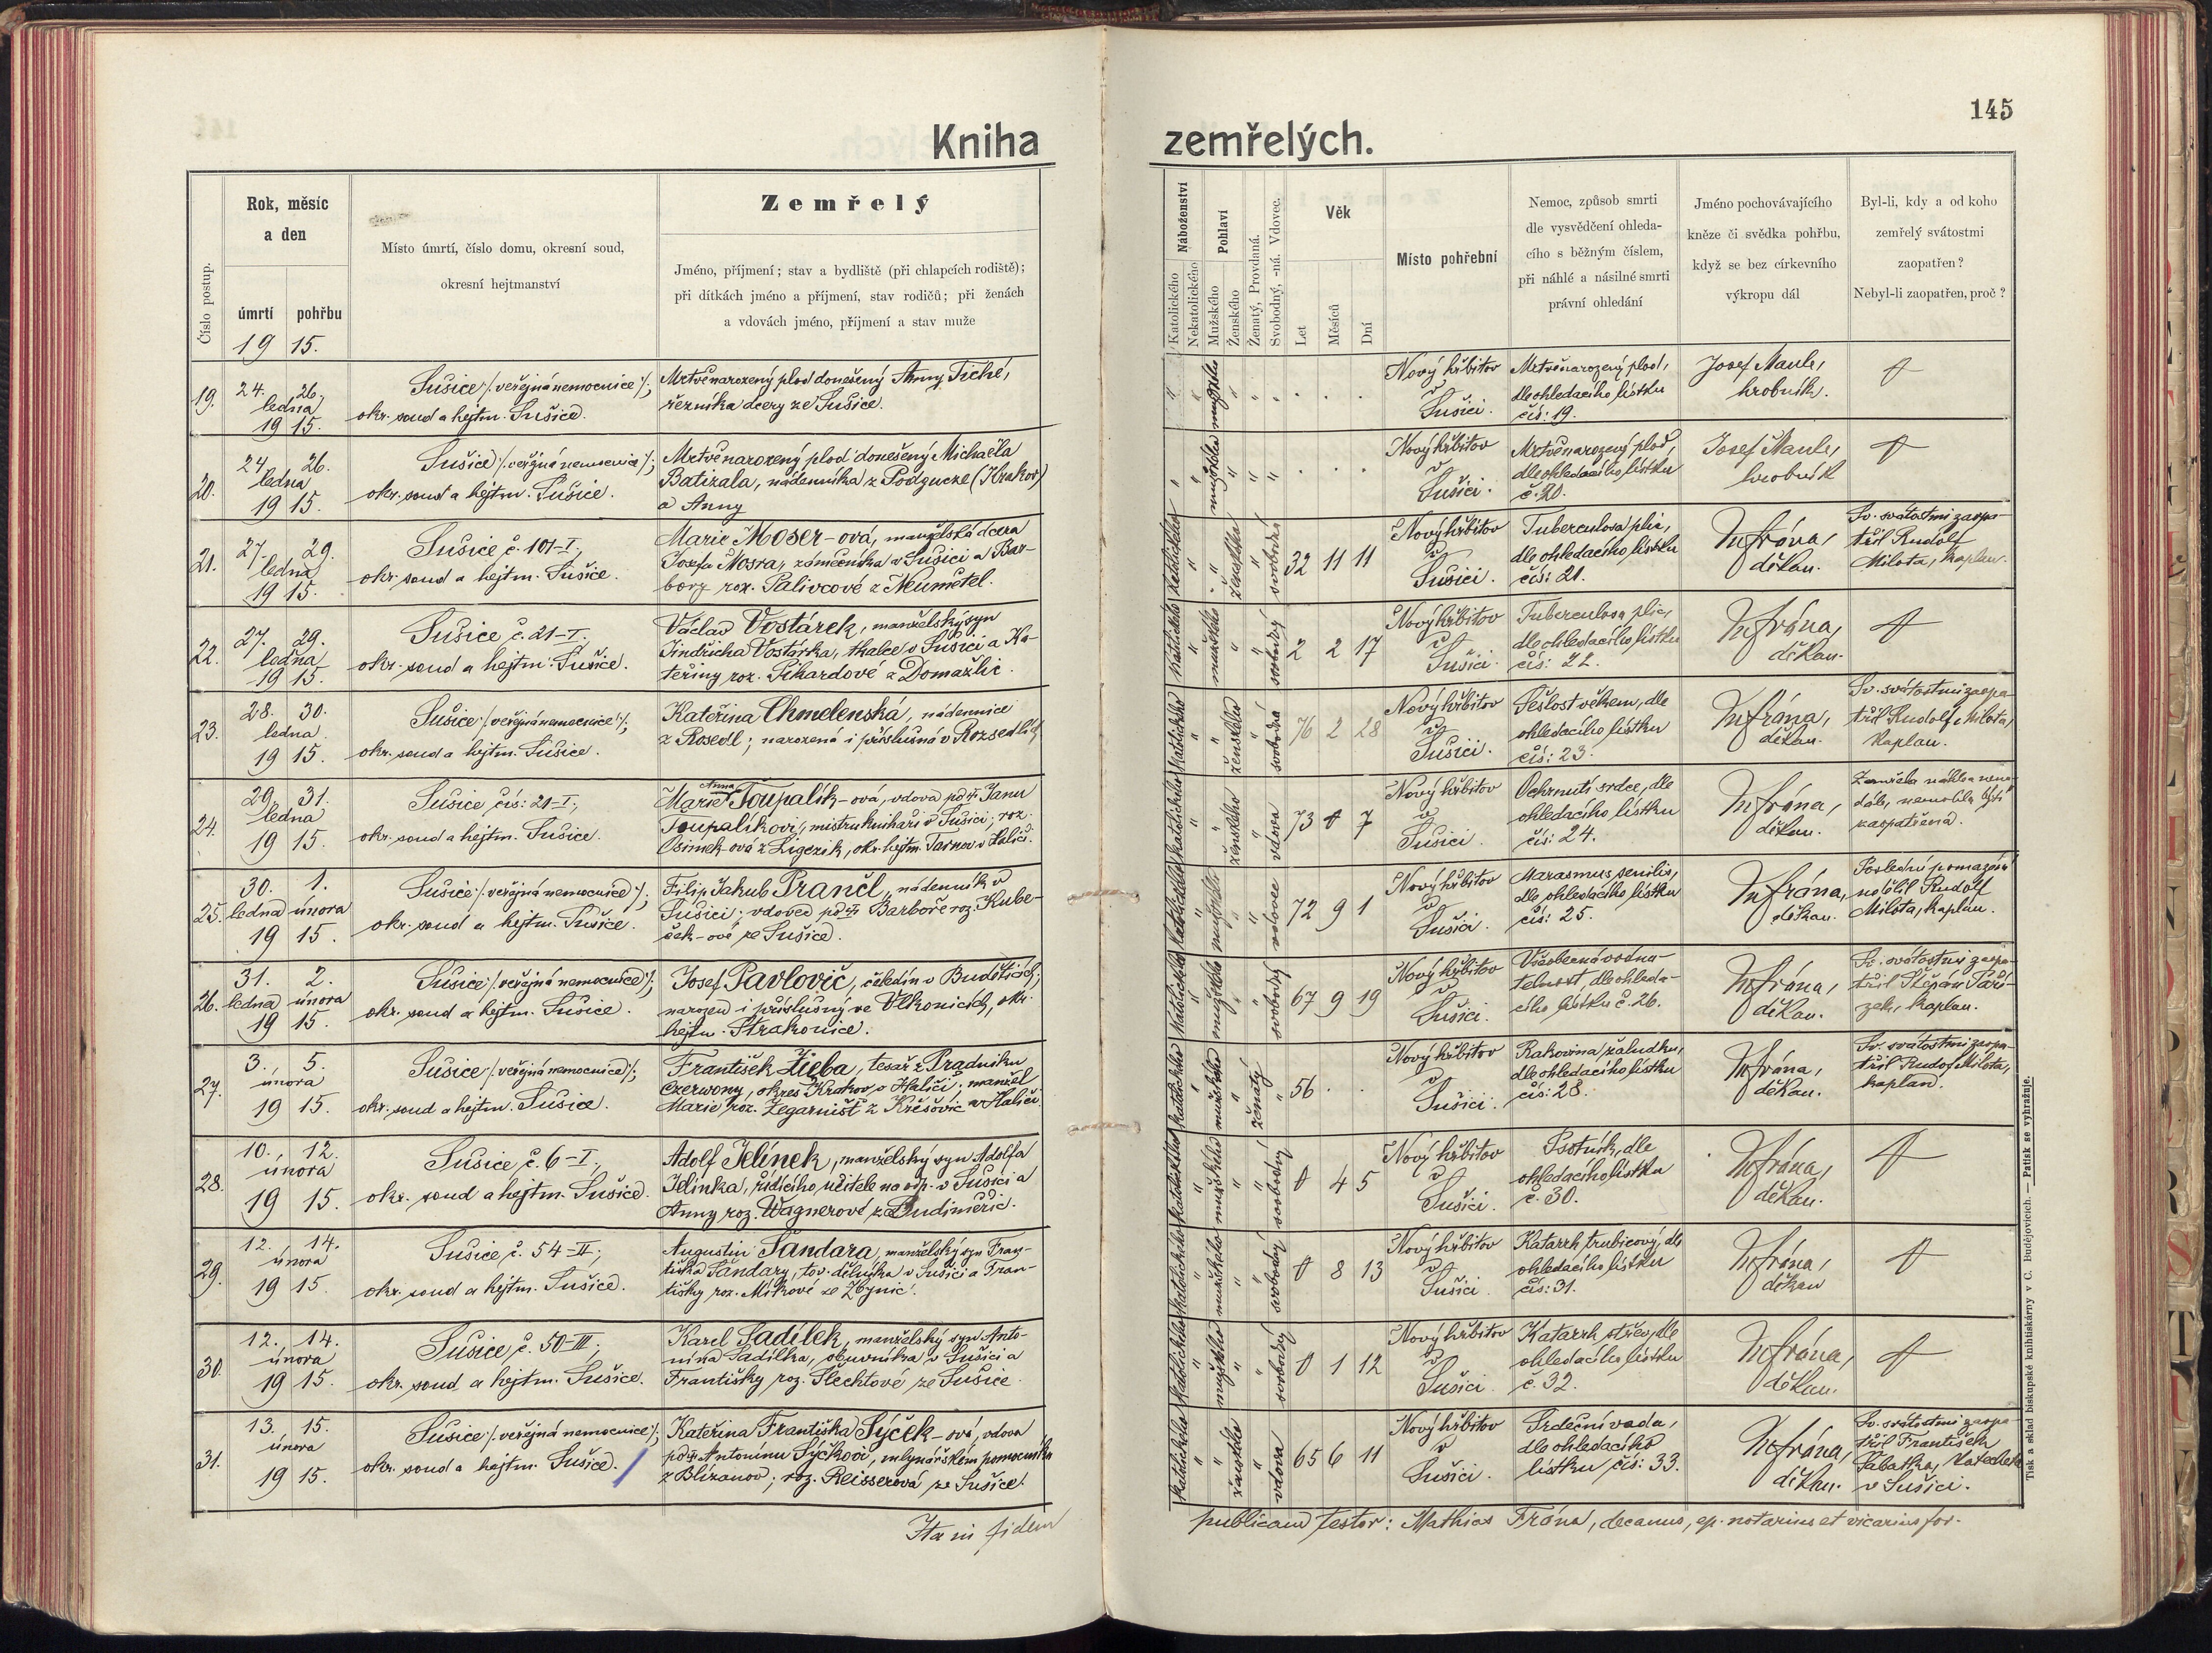 145
Kniha zemřelých.
Číslo postup.
Rok, měsíc a den
úmrtí pohřbu
19 15.
Místo úmrtí, číslo domu, okresní soud,
okresní hejtmanství
Zemřelý
Jméno, příjmení; stav a bydliště (při chlapcích rodiště);
při dítkách jméno a příjmení, stav rodičů; při ženách
a vdovách jméno, příjmení a stav muže
Náboženství
Katolického
Nekatolického
Pohlaví
Mužského
Ženského
Ženatý, Provdaná.
Svobodný, -ná. Vdovec.
Věk
Let
Měsíců
Dní
Místo pohřební
Nemoc, způsob smrti
dle vysvědčení ohleda-
cího s běžným číslem,
při náhlé a násilné smrti
právní ohledání
Jméno pochovávajícího
kněze či svědka pohřbu,
když se bez církevního
výkropu dál
Byl-li, kdy a od koho
zemřelý svátostmi
zaopatřen?
Nebyl-li zaopatřen, proč?
19.
24. 26.
ledna
19 15.
Sušice /: veřejná nemocnice :/;
okr. soud a hejtm. Sušice.
Mrtvěnarozený plod donešený Anny Tiché,
řezníka dcery ze Sušice.
mužské
Nový hřbitov
v
Sušici.
Mrtvěnarozený plod,
dle ohledacího lístku
čís: 19.
Josef Maule,
hrobník.
20.
24. 26.
ledna
19 15.
Sušice /: veřejná nemocnice :/;
okr. soud a hejtm. Sušice.
Mrtvě narozený plod donešený Michaela
Batizala, nádenníka z Podgucze (Krakov)
a Anny
Nový hřbitov
v
Sušici.
Mrtvěnarozený plod,
dle ohledacího lístku
č. 20.
Josef Maule,
hrobník
21.
27. 29.
ledna
19 15.
Sušice č. 101-I;
okr. soud a hejtm. Sušice.
Marie Moser-ová, manželská dcera
Josefa Mosra, zámečníka v Sušici a Bar-
bory roz. Palivcové z Neumětel.
katolického
ženského
svobodná
32 11 11
Nový hřbitov
v
Sušici.
Tuberculosa plic,
dle ohledacího lístku
čís: 21.
M Frána,
děkan.
Sv. svátostmi zaopa-
třil Rudolf
Milota, kaplan.
22.
27. 29.
ledna
19 15.
Sušice č. 21-I;
okr. soud a hejtm. Sušice.
Václav Vostárek, manželský syn
Jindřicha Vostárka, tkalce v Sušici a Ka-
teřiny roz. Pikardové z Domažlic.
katolického
mužského
svobodný
2 2 17
Nový hřbitov
v
Sušici.
Tuberculosa plic,
dle ohledacího lístku
čís: 22.
M Frána,
děkan.
23.
28. 30.
ledna
19 15.
Sušice /: veřejná nemocnice :/;
okr. soud a hejtm. Sušice.
Kateřina Chmelenská, nádennice
z Rosedl; narozená i příslušná v Rozsedlích
katolického
ženského
svobodná
76 2 28
Nový hřbitov
v
Sušici.
Sešlost věkem, dle
ohledacího lístku
čís: 23.
M Frána,
děkan.
Sv. svátostmi zaopa-
třil Rudolf Milota,
kaplan.
24.
29. 31.
ledna
19 15.
Sušice, čís: 21-I;
okr. soud a hejtm. Sušice.
Anna
Marie Toupalík-ová, vdova po † Janu
Toupalíkovi, mistru knihaři v Sušici; roz.
Osimek-ová z Ligezik, okr. hejtm. Tarnov v Haliči.
katolického
ženského
vdova
73 0 7
Nový hřbitov
v
Sušici.
Ochrnutí srdce, dle
ohledacího lístku
čís: 24.
M Frána,
děkan.
Zemřela náhle a nena-
dále, nemohla býti
zaopatřena.
25.
30. 1.
ledna února
19 15.
Sušice /: veřejná nemocnice :/;
okr. soud a hejtm. Sušice.
Filip Jakub Prančl, nádenník v
Sušici; vdovec po † Barboře roz. Kube-
ček-ové ze Sušice.
katolického
mužského
vdovec
72 9 1
Nový hřbitov
v
Sušici.
Marasmus senilis,
dle ohledacího lístku
čís: 25.
M Frána,
děkan.
Poslední pomazání
udělil Rudolf
Milota, kaplan.
26.
31. 2.
ledna února
19 15.
Sušice /: veřejná nemocnice :/;
okr. soud a hejtm. Sušice.
Josef Pavlovič, čeledín v Budětících;
narozen i příslušný ve Volkonicích, okr.
hejtm. Strakonice.
katolického
mužského
svobodný
67 9 19
Nový hřbitov
v
Sušici.
Všeobecná vodna-
telnost, dle ohleda-
cího lístku č. 26.
M Frána,
děkan.
Sv. svátostmi zaopa-
třil Štěpán Paří-
zek, kaplan.
27.
3. 5.
února
19 15.
Sušice /: veřejná nemocnice :/;
okr. soud a hejtm. Sušice.
František Zieba, tesař z Pradniku
Czerwony, okres Krakov v Haliči; manžel
Marie roz. Zegarništ z Krěšovic v Haliči.
katolického
mužského
ženatý
56
Nový hřbitov
v
Sušici.
Rakovina žaludku,
dle ohledacího lístku
čís: 28.
M Frána,
děkan.
Sv. svátostmi zaopa-
třil Rudolf Milota,
kaplan.
28.
10. 12.
února
19 15.
Sušice, č. 6-I;
okr. soud a hejtm. Sušice.
Adolf Jelínek, manželský syn Adolfa
Jelínka, řídícího učitele na odp. v Sušici a
Anny roz. Wagnerové z Budiměřic.
katolického
mužského
svobodný
0 4 5
Nový hřbitov
v
Sušici.
Psotník, dle
ohledacího lístku
č. 30.
M Frána,
děkan.
29.
12. 14.
února
19 15.
Sušice, č. 54-II;
okr. soud a hejtm. Sušice.
Augustin Šandara, manželský syn Fran-
tiška Šandary, tov. dělníka v Sušici a Fran-
tišky roz. Mikové ze Zbynic.
katolického
mužského
svobodný
0 8 13
Nový hřbitov
v
Sušici.
Katarrh trubicový, dle
ohledacího lístku
čís: 31.
M Frána,
děkan
30.
12. 14.
února
19 15.
Sušice, č. 50-III;
okr. soud a hejtm. Sušice.
Karel Sadílek, manželský syn Anto-
nína Sadílka, obuvníka v Sušici a
Františky roz. Šlechtové ze Sušice.
katolického
mužského
svobodný
0 1 12
Nový hřbitov
v
Sušici.
Katarrh střev, dle
ohledacího lístku
č. 32.
M Frána,
děkan.
31.
13. 15.
února
19 15.
Sušice /: veřejná nemocnice :/;
okr. soud a hejtm. Sušice.
Kateřina Františka Sýček-ová, vdova
po † Antonínu Sýčkovi, mlynářském pomocníku
z Blízanov; roz. Reisserová ze Sušice.
katolického
ženského
vdova
65 6 11
Nový hřbitov
v
Sušici.
Srdeční vada,
dle ohledacího
lístku čís: 33.
M Frána,
děkan.
Sv. svátostmi zaopa-
třil František
Sabatka, katecheta
v Sušici.
Ita in fidem publicam testor: Mathias Frána, decanus, ep. notarius et vicarius for.
Tisk a sklad biskupské knihtiskárny v Č. Budějovicích. — Patisk se vyhražuje.